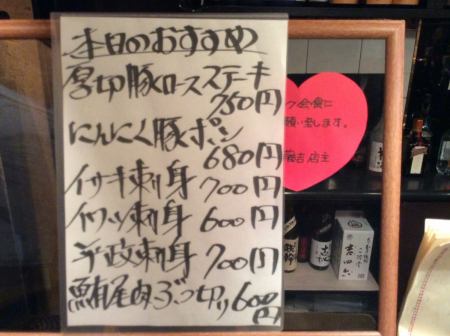 本日のおすすめ
厚切豚ロースステーキ
750円
にんにく豚ポン
680円
イサキ刺身 700円
イワシ刺身 600円
平政刺身 700円
鮪尾肉ぶつ切り 600円
会食に
願い致します。
店主